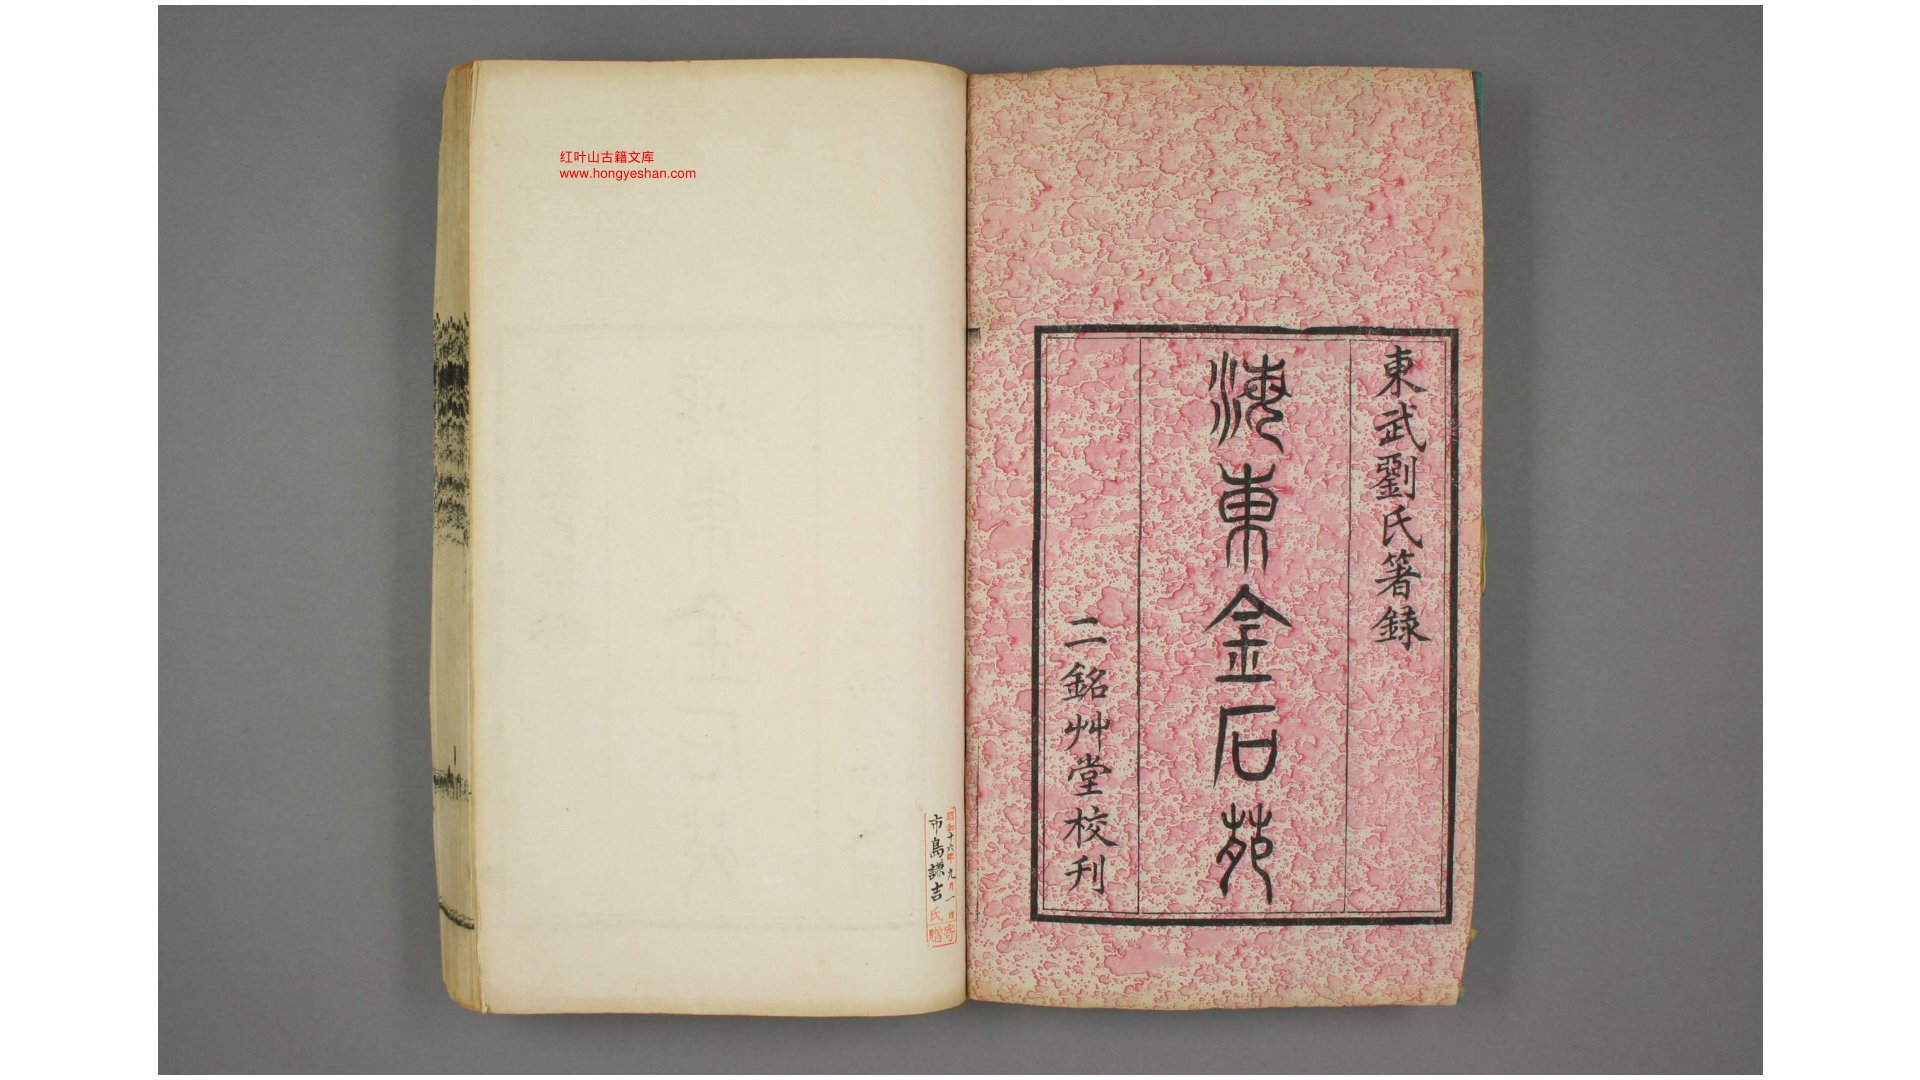 東武劉氏箸録
海東金石苑
二銘艸堂校刊
红叶山古籍文库
www.hongyeshan.com
昭和十六年九月一日
市島謙吉氏
寄贈